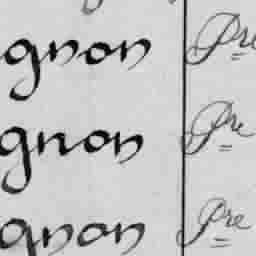 gnon Pre
gnon Pre
gnon Pre